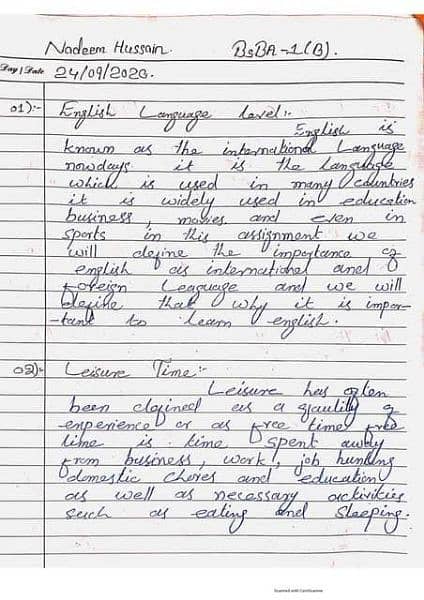 Nadeem Hussain. BsBA-1(B).
Day / Date 24/09/2020.
01):- English Language level:-
English is
known as the international Language
nowdays it is the language
which is used in many countries
it is widely used in education
business, movies and even in
sports in this assignment we
will define the importance of
english as international and
foreign Leaguage and we will
define that why it is impor-
-tant to learn english.
02):- Leisure Time:-
Leisure has often
been defined as a quality of
-experience or as free time free
time is time spent away
from business, work, job hunting
domestic chores and education
as well as necessary activities
such as eating and sleeping.
Scanned with CamScanner